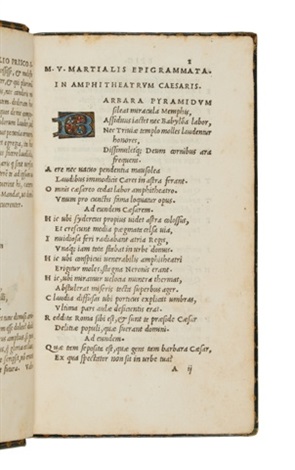 2
M. V. MARTIALIS EPIGRAMMATA.
IN AMPHITHEATRVM CAESARIS.
BARBARA PYRAMIDVM
sileat miracula Memphis,
Assiduus iactet nec Babylõa labor,
Nec Triuiæ templo molles laudentur
honores,
Dissimuletq; Deum cornibus ara
frequens.
A ere nec uacuo pendentia mausolea
Laudibus immodicis Cares in astra ferant.
O mnis cæsareo cedat labor amphitheatro.
Vnum pro cunctis fama loquatur opus.
Ad eundem Cæsarem.
H ic ubi sydereus propius uidet astra colossus,
Et crescunt media pegmata celsa uia,
I nuidiosa feri radiabant atria Regis,
Vnaq; iam tota stabat in urbe domus.
H ic ubi conspicui uenerabilis amphitheatri
Erigitur moles, stagna Neronis erant.
H ic, ubi miramur uelocia munera thermas,
Abstulerat miseris tecta superbus ager.
C laudia diffusas ubi porticus explicat umbras,
Vltima pars aulæ deficientis erat.
R eddita Roma sibi est, & sunt te præside Cæsar
Delitiæ populi, quæ fuerant domini.
Ad eundem.
Q uæ tam seposita est, quæ gens tam barbara Cæsar,
Ex qua spectator non sit in urbe tua?
A ij